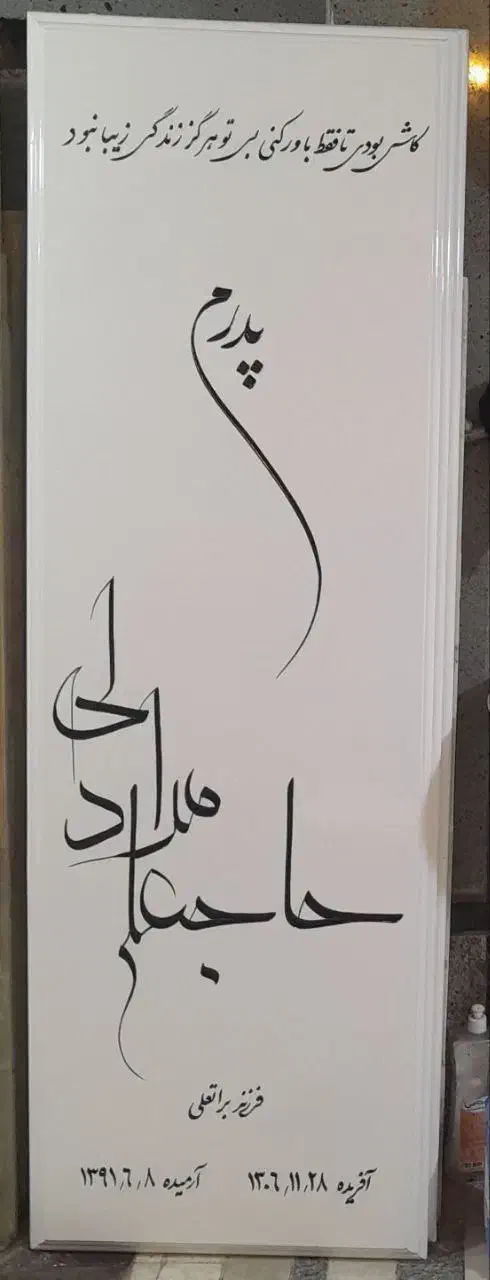 کاش بودی تا فقط باور کنی بی تو هرگز زندگی زیبا نبود
پدرم
حاجعلی
مرادی
فرزند براتعلی
آفریده ۱۳۰۶٫۱۱٫۲۸ آرمیده ۱۳۹۱٫۶٫۸